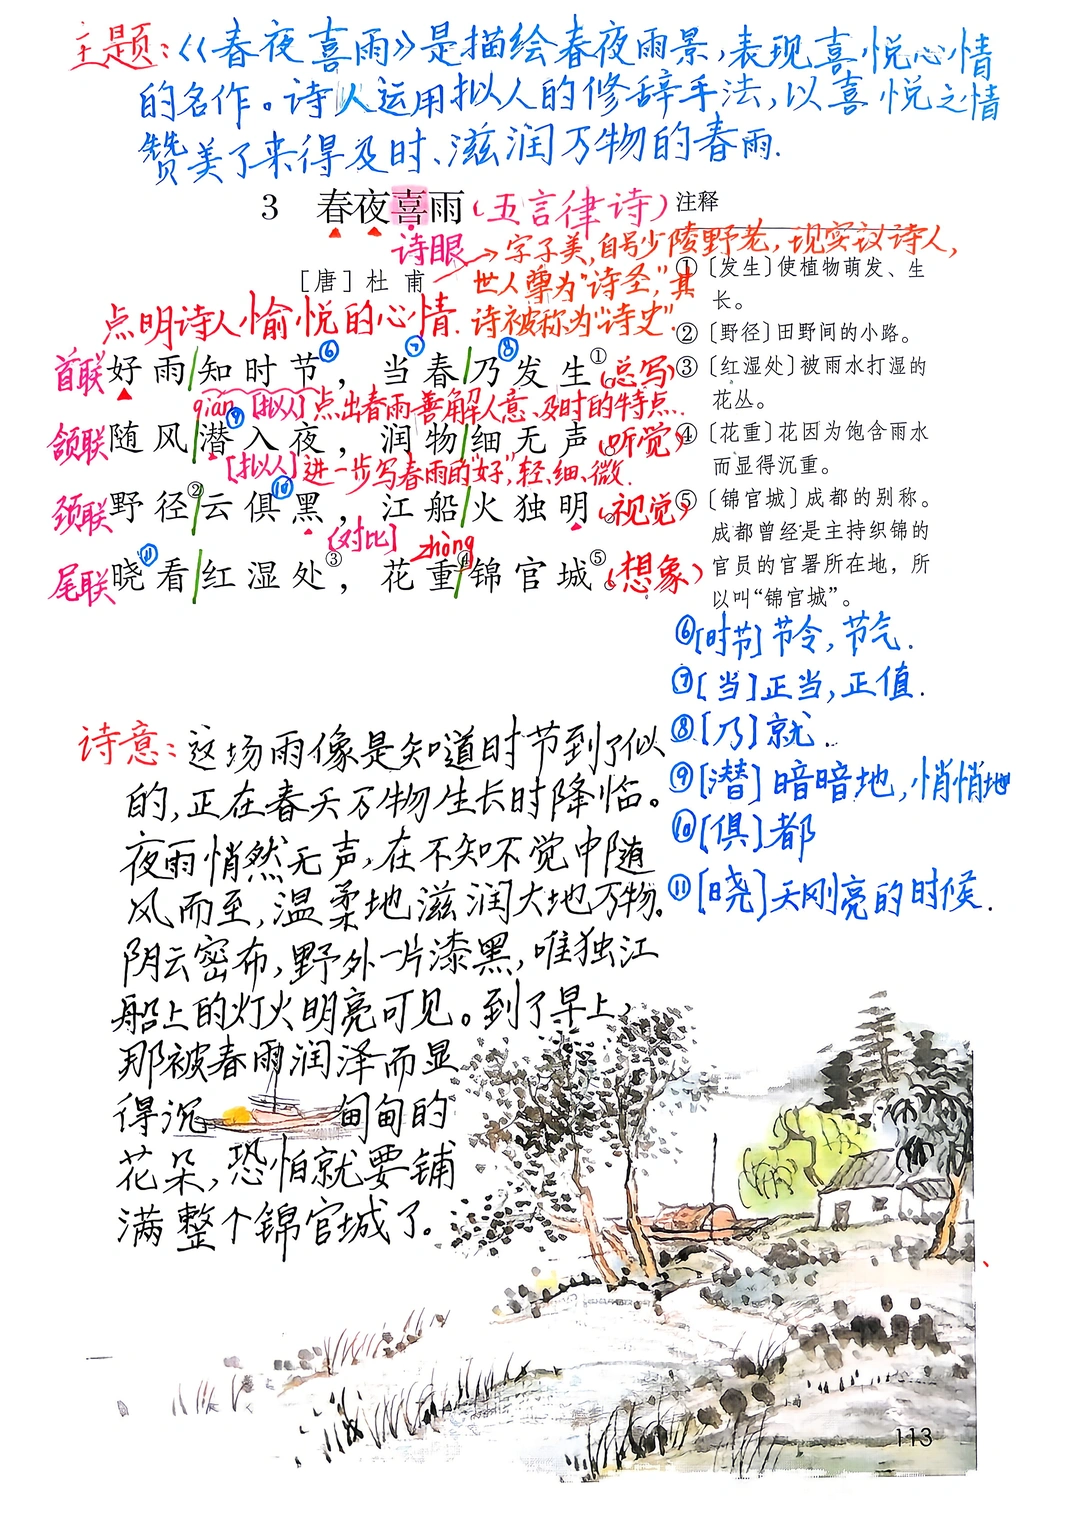 主题:《春夜喜雨》是描绘春夜雨景,表现喜悦心情
的名作。诗人运用拟人的修辞手法,以喜悦之情
赞美了来得及时、滋润万物的春雨.
3 春夜喜雨(五言律诗)
诗眼
[唐]杜甫
→字子美,自号少陵野老,现实议诗人,
世人尊为“诗圣”,其
诗被称为“诗史”.
点明诗人愉悦的心情.
首联 好雨/知时节⑥,当⑦春/乃⑧发生①。(总写)
qián [拟人]点出春雨善解人意、及时的特点.
颔联 随风/潜⑨入夜,润物/细无声。(听觉)
[拟人]进一步写春雨的“好”,轻、细、微.
颈联 野径②/云俱⑩黑,江船/火独明。(视觉)
[对比] zhòng
尾联 晓⑪看/红湿处③,花重④/锦官城⑤。(想象)
注释
①〔发生〕使植物萌发、生
长。
②〔野径〕田野间的小路。
③〔红湿处〕被雨水打湿的
花丛。
④〔花重〕花因为饱含雨水
而显得沉重。
⑤〔锦官城〕成都的别称。
成都曾经是主持织锦的
官员的官署所在地,所
以叫“锦官城”。
⑥[时节]节令,节气.
⑦[当]正当,正值.
⑧[乃]就.
⑨[潜]暗暗地,悄悄地
⑩[俱]都
⑪[晓]天刚亮的时候.
诗意:这场雨像是知道时节到了似
的,正在春天万物生长时降临。
夜雨悄然无声,在不知不觉中随
风而至,温柔地滋润大地万物。
阴云密布,野外一片漆黑,唯独江
船上的灯火明亮可见。到了早上,
那被春雨润泽而显
得沉甸甸的
花朵,恐怕就要铺
满整个锦官城了。
113